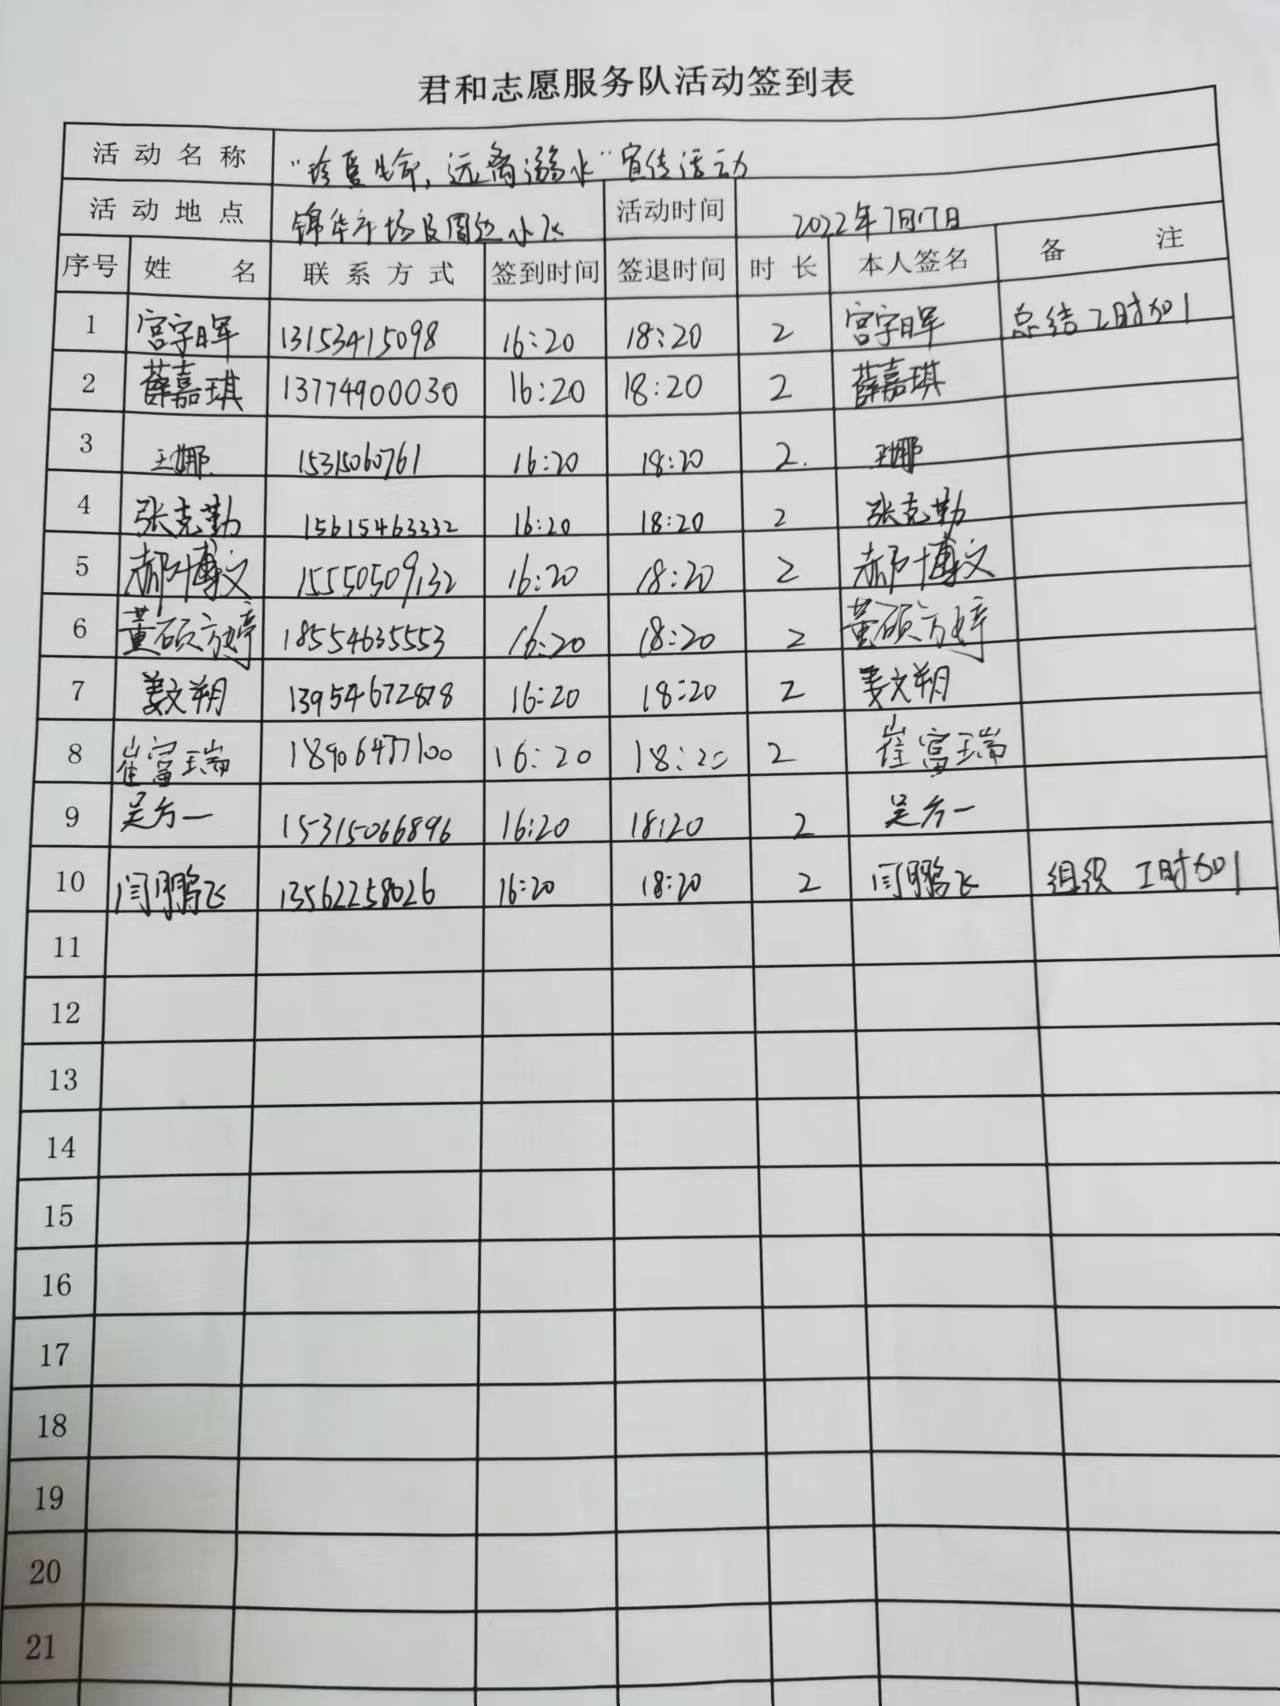 君和志愿服务队活动签到表
活动名称 “珍爱生命，远离溺水”宣传活动
活动地点 锦华广场及周边小区 活动时间 2022年7月17日
序号 姓名 联系方式 签到时间 签退时间 时长 本人签名 备注
1 宫宇晖 13153415098 16:20 18:20 2 宫宇晖 总结工时加1
2 薛嘉琪 13774900030 16:20 18:20 2 薛嘉琪
3 王娜 1531060761 16:20 18:20 2 王娜
4 张克勤 15615463332 16:20 18:20 2 张克勤
5 郝博文 15550509132 16:20 18:20 2 郝博文
6 董硕方婷 18554635553 16:20 18:20 2 董硕方婷
7 姜文朔 13954672878 16:20 18:20 2 姜文朔
8 崔富瑞 18906477100 16:20 18:20 2 崔富瑞
9 吴方一 15315066896 16:20 18:20 2 吴方一
10 闫鹏飞 13562258026 16:20 18:20 2 闫鹏飞 组织工时加1
11
12
13
14
15
16
17
18
19
20
21